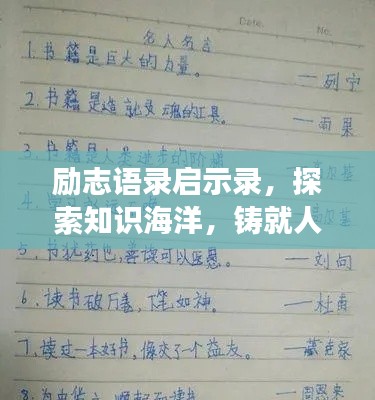 Date
名人名言
1. 书籍是巨大的力量。 ——列宁
2. 书籍是造就灵魂的工具。 ——雨果
3. 书籍是人类进步的阶梯
励志语录启示录，探
索知识海洋，铸就人
5. 书犹药也，善读可以医愚。 ——刘向
6. 读书破万卷，下笔如神。 ——杜甫
7. 读过一本好书，像交了一个益友。 ——臧克家
——周恩来